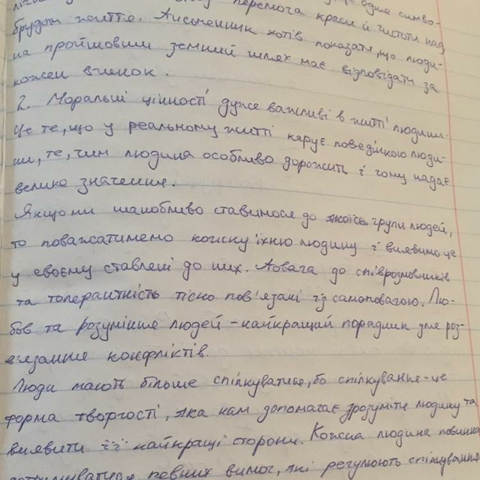 перемога краси й чистоти над
брудом життя. Письменник хотів показати, що люди-
на пройшовши земний шлях має відповідати за
кожен вчинок.
2. Моральні цінності дуже важливі в житті людини.
Це те, що у реальному житті керує поведінкою люди-
ни, те, чим людина особливо дорожить і чому надає
велике значення.
Якщо ми шанобливо ставимося до якоїсь групи людей,
то поважатимемо кожну їхню людину і виявимо це
у своєму ставлені до них. Повага до співрозмовників
та толерантність тісно пов'язані із самоповагою. Лю-
бов та розуміння людей - найкращий порадник для роз-
в'язання конфліктів.
Люди мають більше спілкуватися, бо спілкування - це
форма творчості, яка нам допомагає зрозуміти людину та
виявити її найкращі сторони. Кожна людина повинна
дотримуватися певних вимог, які регулюють спілкування